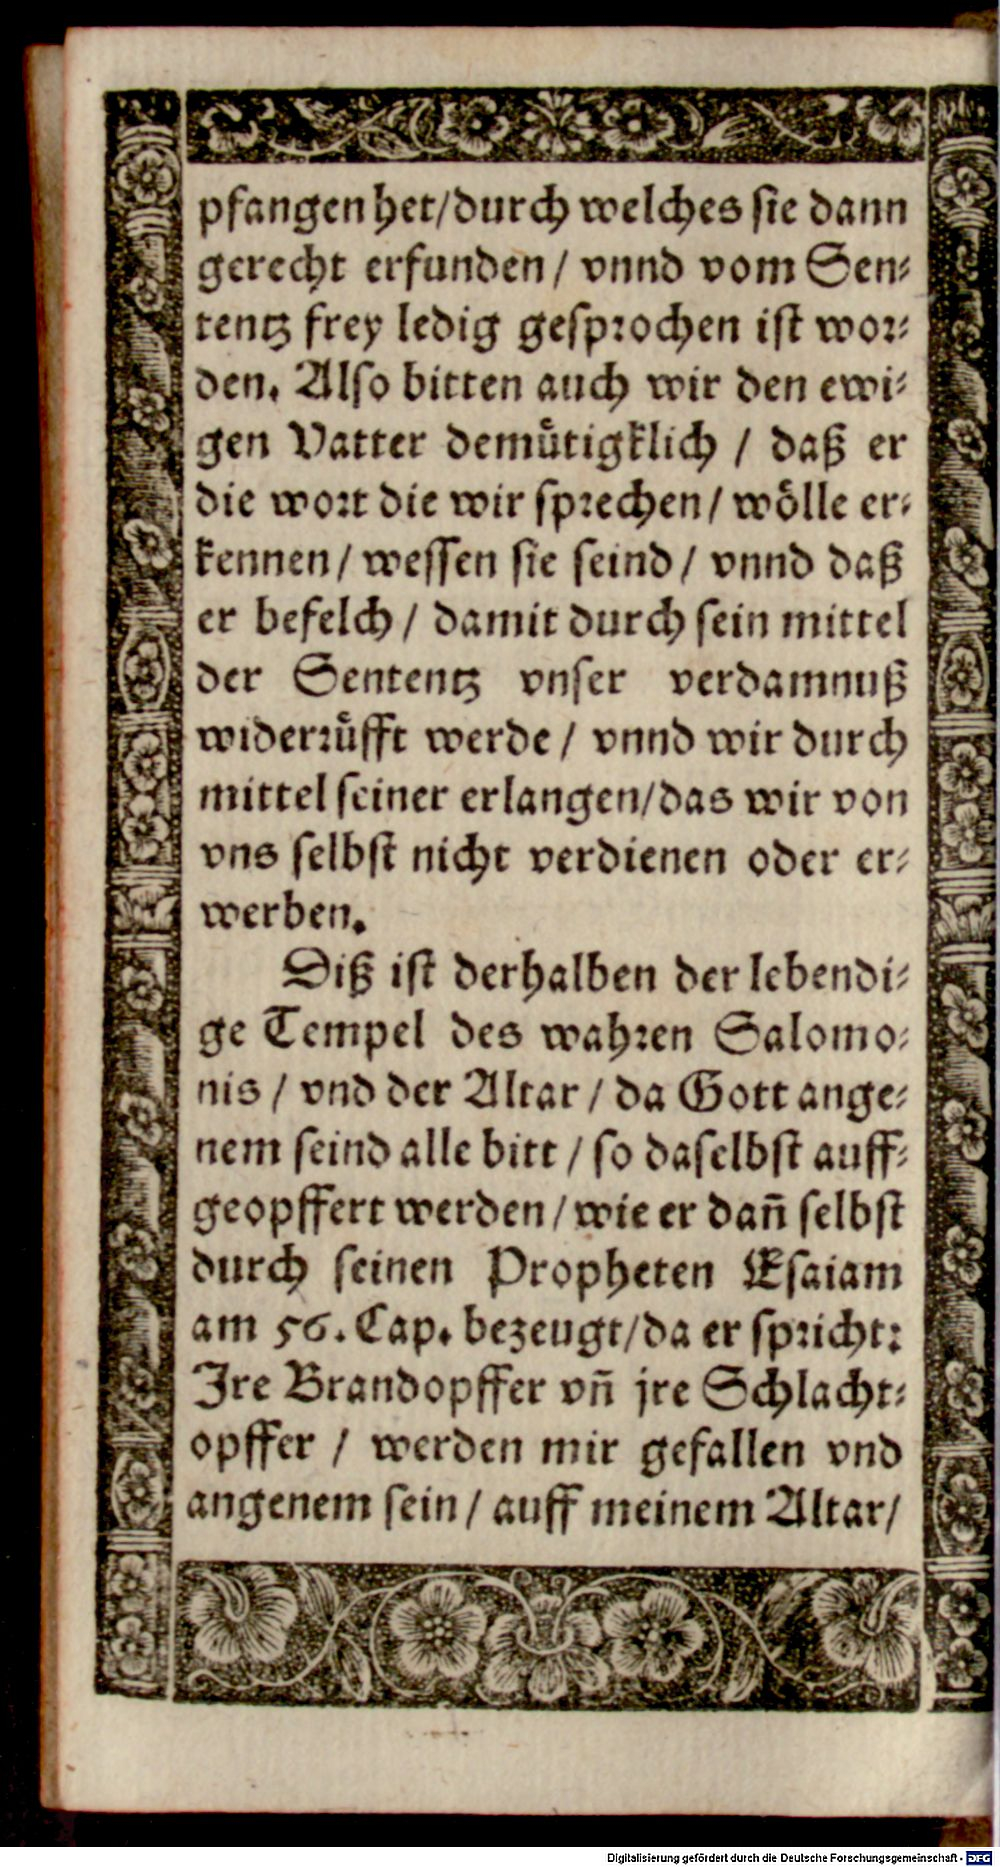 pfangen het/durch welches sie dann
gerecht erfunden / vnnd vom Sen⸗
tentz frey ledig gesprochen ist wor⸗
den. Also bitten auch wir den ewi⸗
gen Vatter demuͤtigklich / daß er
die wort die wir sprechen / woͤlle er⸗
kennen / wessen sie seind / vnnd daß
er befelch / damit durch sein mittel
der Sententz vnser verdamnuß
widerruͤfft werde / vnnd wir durch
mittel seiner erlangen/das wir von
vns selbst nicht verdienen oder er⸗
werben.
Diß ist derhalben der lebendi⸗
ge Tempel des wahren Salomo⸗
nis / vnd der Altar / da Gott ange⸗
nem seind alle bitt / so daselbst auff⸗
geopffert werden / wie er dañ selbst
durch seinen Propheten Esaiam
am 56. Cap. bezeugt/da er spricht:
Ire Brandopffer vñ jre Schlacht⸗
opffer / werden mir gefallen vnd
angenem sein / auff meinem Altar/
Digitalisierung gefördert durch die Deutsche Forschungsgemeinschaft - DFG